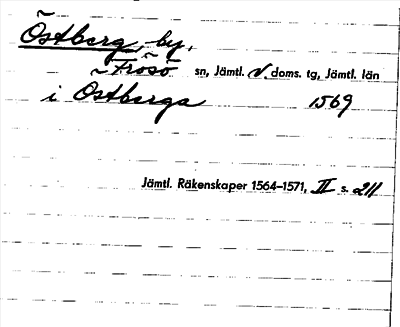 Östberg, by,
Frösö sn, Jämtl. V. doms. tg, Jämtl. län
i Ostberga 1569
Jämtl. Räkenskaper 1564–1571, II s. 211